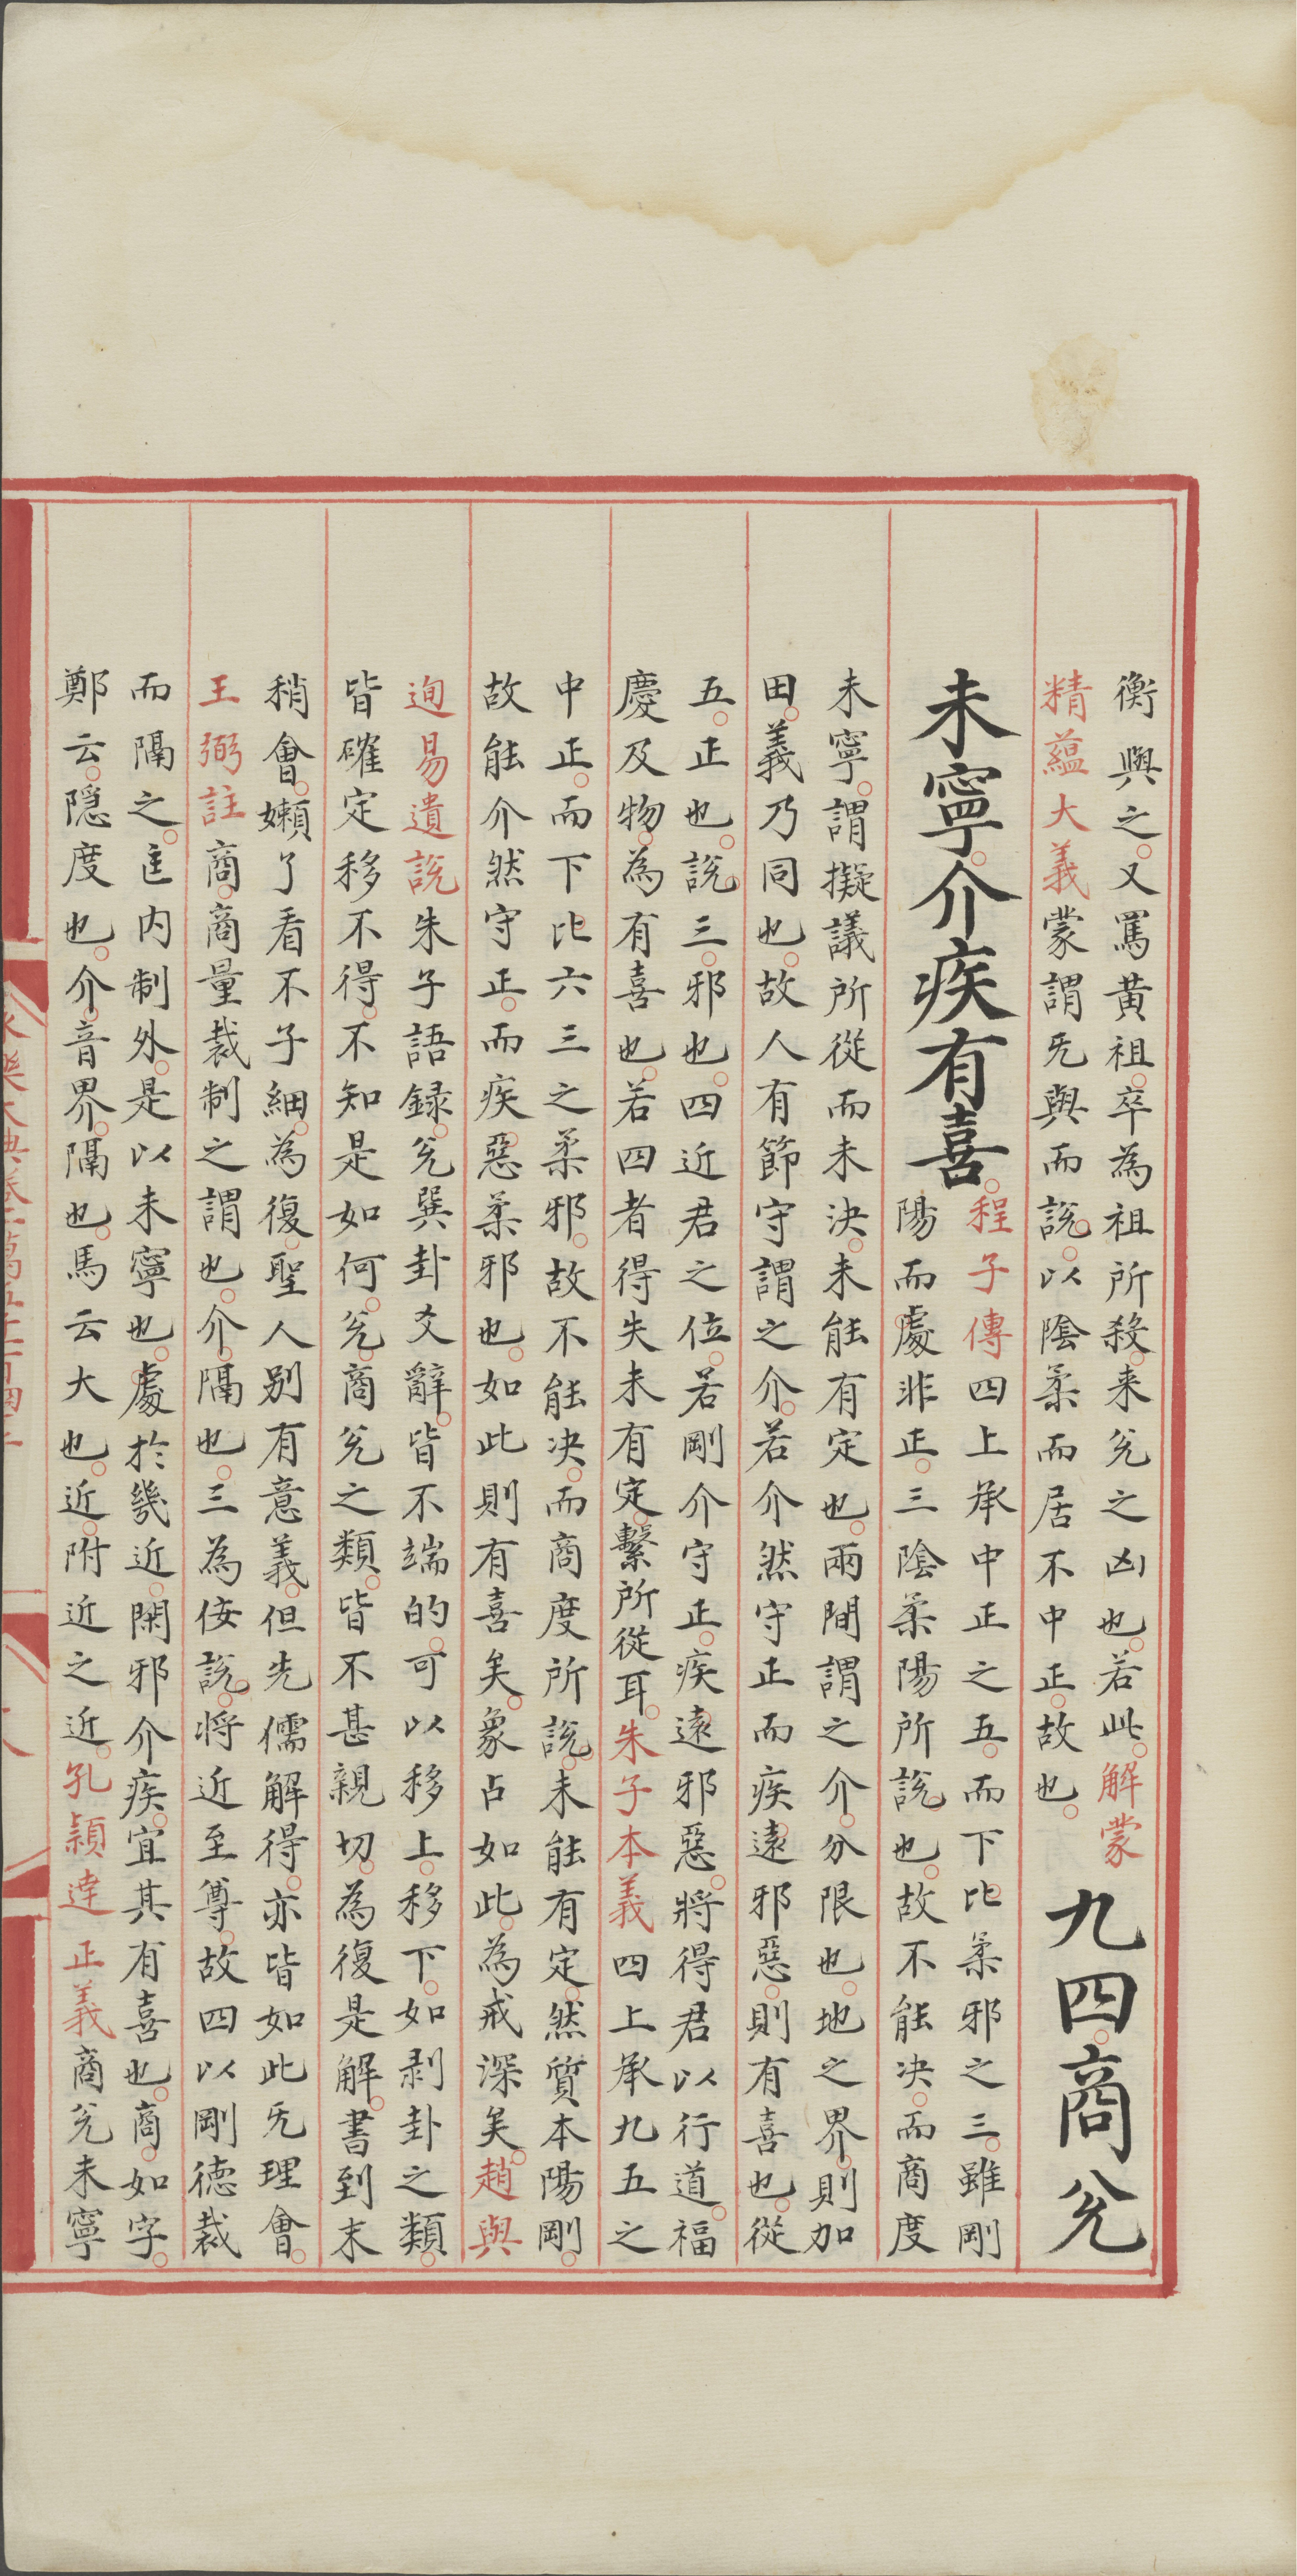 衡與之又罵黃祖卒為祖所殺来兊之凶也若此解蒙
精蘊大義蒙謂旡與而說以陰柔而居不中正故也
九四商兊
未寧介疾有喜
程子傳四上承中正之五而下比柔邪之三雖剛
陽而處非正三陰柔陽所說也故不能决而商度
未寧謂擬議所從而未決未能有定也兩間謂之介分限也地之界則加
田義乃同也故人有節守謂之介若介然守正而疾遠邪惡則有喜也從
五正也說三邪也四近君之位若剛介守正疾遠邪惡將得君以行道福
慶及物為有喜也若四者得失未有定繫所從耳朱子本義四上承九五之
中正而下比六三之柔邪故不能決而商度所說未能有定然質本陽剛
故能介然守正而疾惡柔邪也如此則有喜矣象占如此為戒深矣趙與
迿易遺說朱子語録兊巽卦爻辭皆不端的可以移上移下如剥卦之類
皆確定移不得不知是如何兊商兊之類皆不甚親切為復是解書到末
稍會嬾了看不子細為復聖人別有意義但先儒解得亦皆如此旡理會
王弼註商商量裁制之謂也介隔也三為佞說將近至尊故四以剛德裁
而隔之匡内制外是以未寧也處於幾近閑邪介疾宜其有喜也商如字
鄭云隱度也介音界隔也馬云大也近附近之近孔穎達正義商兊未寧